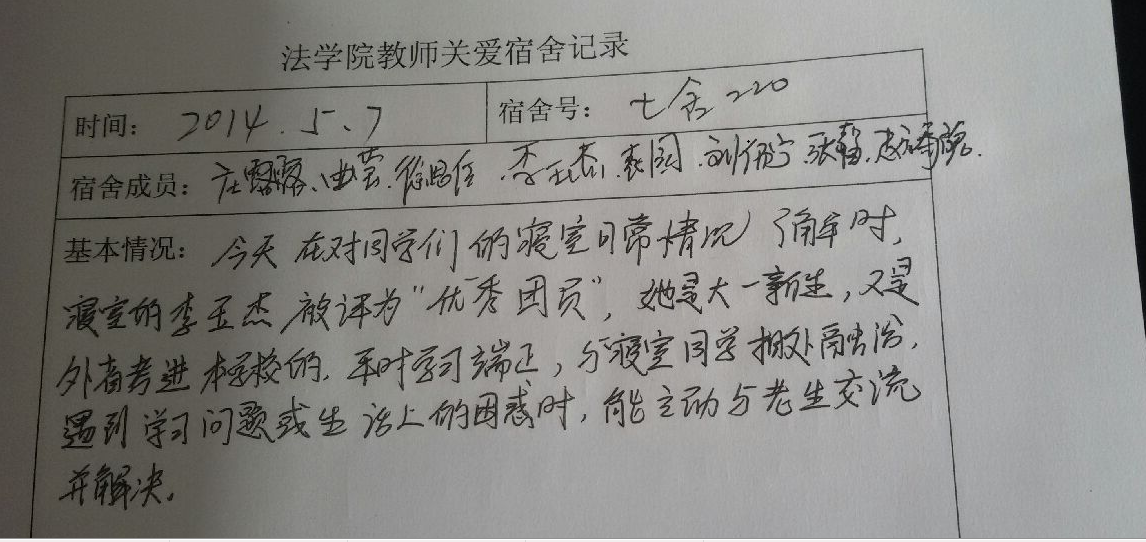 法学院教师关爱宿舍记录
时间: 2014.5.7 宿舍号: 七舍220
宿舍成员: 庄露露、曲芸. 李玉杰. 张静.
基本情况: 今天在对同学们的寝室日常情况了解时,
寝室的李玉杰被评为“优秀团员”, 她是大一新生, 又是
外高考进本学校的. 平时学习端正, 与寝室同学相处融洽.
遇到学习问题或生活上的困惑时, 能主动与老生交流
并解决.